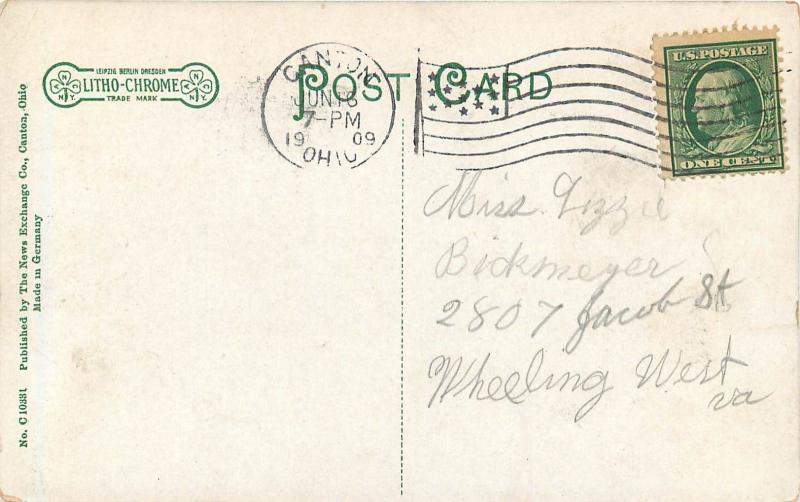 LEIPZIG BERLIN DRESDEN
LITHO-CHROME
TRADE MARK
N Y
N Y
POST CARD
CANTON
JUN 16
7-PM
19 09
OHIO
U.S. POSTAGE
ONE CENT
Miss. Lizzie
Bickmeyer
2807 Jacob St
Wheeling West
va
No. C 10331 Published by The News Exchange Co., Canton, Ohio
Made in Germany